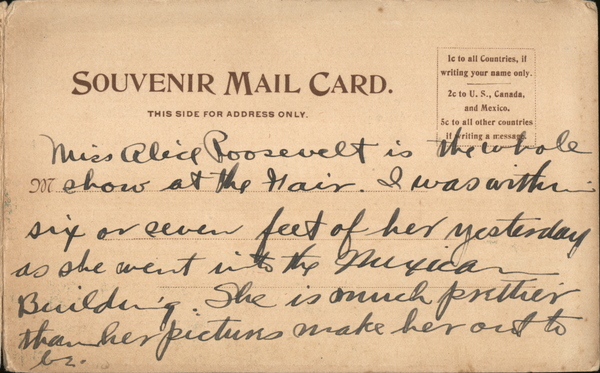 SOUVENIR MAIL CARD.
THIS SIDE FOR ADDRESS ONLY.
1c to all Countries, if
writing your name only.
2c to U. S., Canada,
and Mexico.
5c to all other countries
if writing a message.
Miss Alice Roosevelt is the whole
M
show at the Fair. I was within
six or seven feet of her yesterday
as she went into the Mexican
Building. She is much prettier
than her pictures make her out to
be.